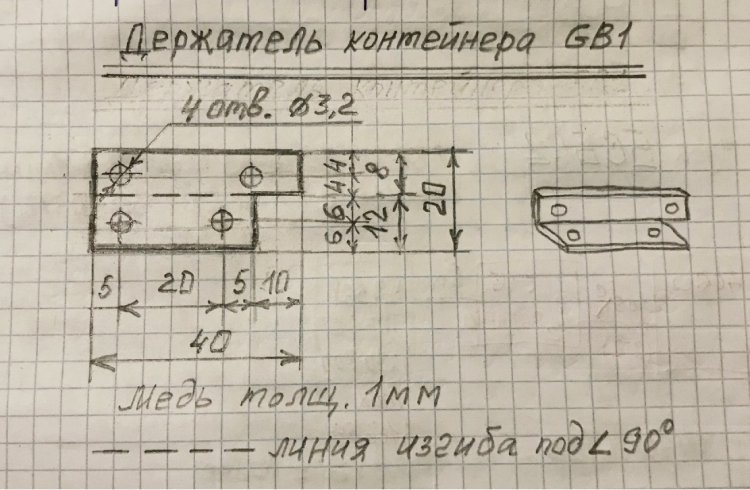 Держатель контейнера GB1
4 отв. ⌀3,2
4
4
8
6
6
12
20
5
20
5
10
40
Медь толщ. 1мм
— — — — линия изгиба под∠90°